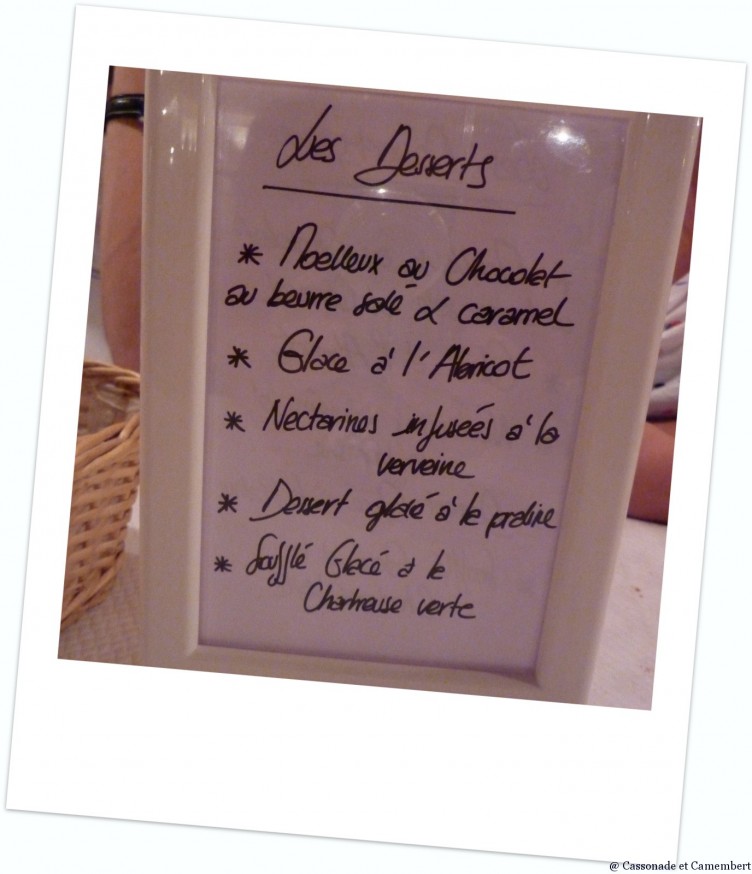 Les Desserts
* Moelleux au Chocolat
au beurre salé & caramel
* Glace à l'Abricot
* Nectarines infusées à la
verveine
* Dessert glacé à la praline
* Soufflé Glacé à la
Chartreuse verte
@ Cassonade et Camembert